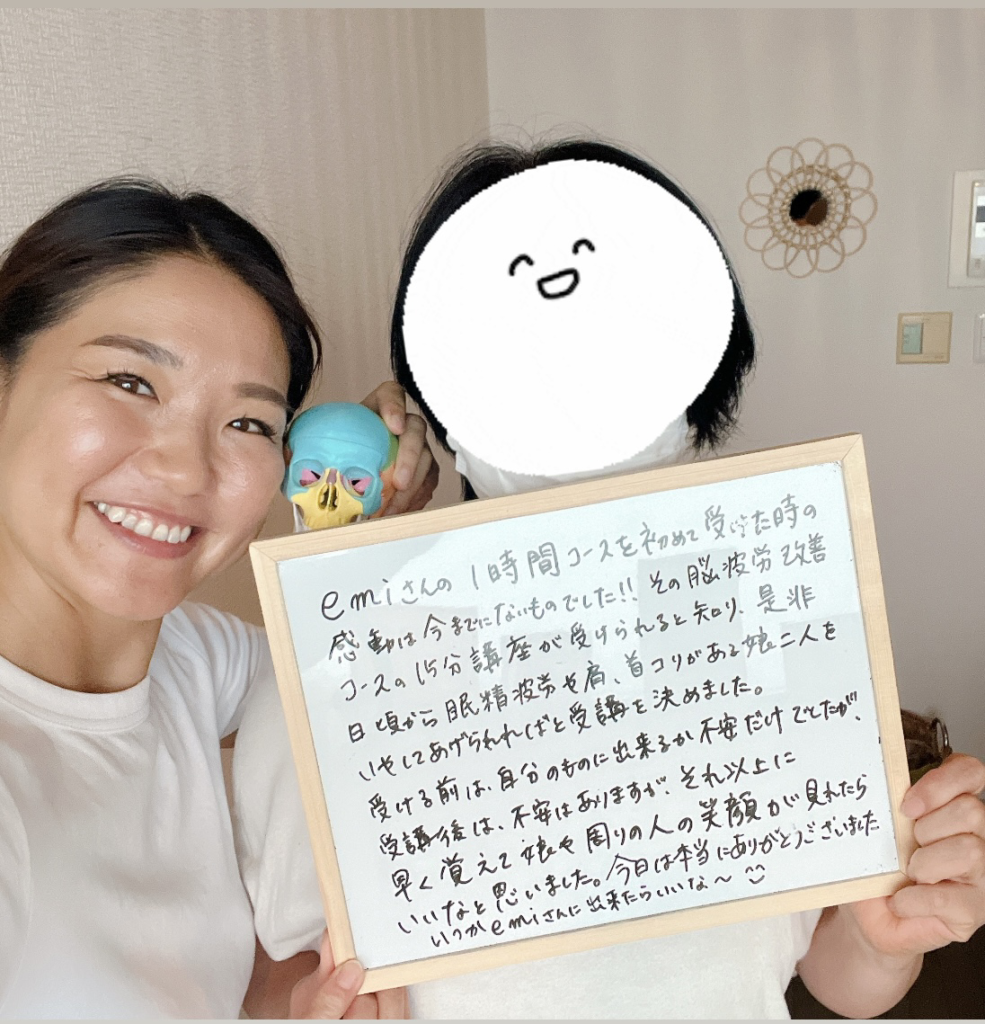 emiさんの1時間コースを初めて受けた時の
感動は今までにないものでした!! その脳疲労改善
コースの15分講座が受けられると知り、是非
日頃から眼精疲労や肩、首コリがある娘二人を
いやしてあげられればと受講を決めました。
受ける前は、自分のものに出来るか不安だけでしたが、
受講後は、不安はありますが、それ以上に
早く覚えて娘や周りの人の笑顔が見れたら
いいなと思いました。今日は本当にありがとうございました
いつかemiさんに出来たらいいな〜